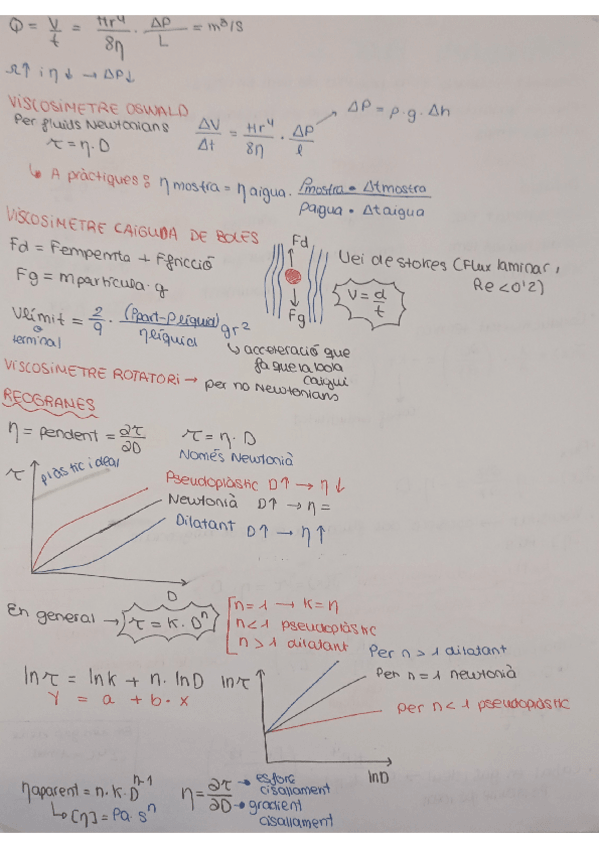 Q = V/t = πr⁴/8η · ΔP/L = m³/s
r↑ i η↓ → ΔP↓
VISCOSÍMETRE OSWALD
Per fluids Newtonians
τ = η · D
ΔV/Δt = πr⁴/8η · ΔP/l
ΔP = ρ · g · Δh
↳ A pràctiques: η mostra = η aigua · ρmostra · Δtmostra / ρaigua · Δt aigua
VISCOSÍMETRE CAIGUDA DE BOLES
Fd = Fempenta + Ffricció
Fg = mpartícula · g
Fd
Fg
Llei de stokes (Flux laminar,
Re < 0'2)
V = d/t
Vlímit = 2/9 · (ρpart - ρlíquid)/ηlíquid gr²
o
terminal
↳ acceleració que
fa que la bola
caigui
VISCOSÍMETRE ROTATORI → per no Newtonians
REOGRANES
η = pendent = ∂τ/∂D
τ = η · D
Només Newtonià
τ
plàstic ideal
Pseudoplàstic D↑ → η↓
Newtonià D↑ → η =
Dilatant D↑ → η↑
D
En general → τ = K · Dⁿ
n = 1 → K = η
n < 1 pseudoplàstic
n > 1 dilatant
ln τ = ln K + n · ln D
Y = a + b · x
ln τ
Per n > 1 dilatant
Per n = 1 newtonià
per n < 1 pseudoplàstic
lnD
η aparent = n · K · Dⁿ⁻¹
↳ [η] = Pa · sⁿ
η = ∂τ/∂D
→ esforç
cisallament
→ gradient
cisallament